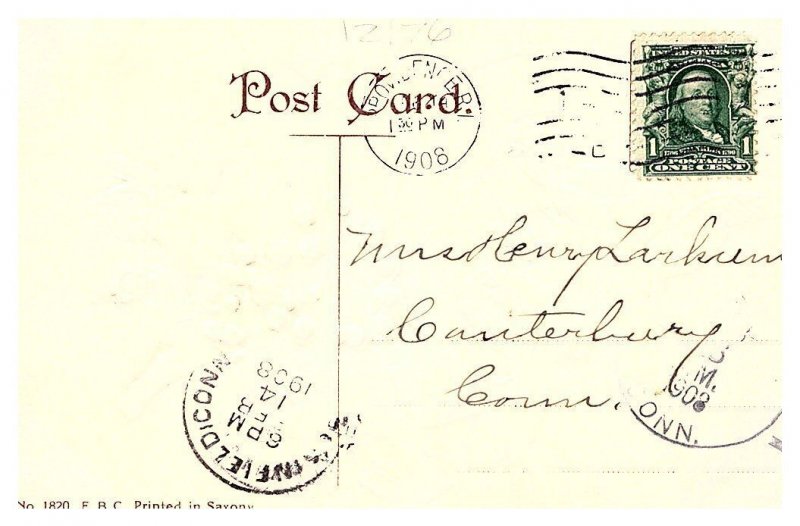 12176
Post Card.
PROVIDENCE R.I.
1 30 PM
1908
UNITED STATES
1 1
POSTAGE
ONE CENT
Mrs Henry Larkum
Canterbury
Conn.
1908
14
6 PM
PLAINFIELD CONN
M.
1908
ONN.
No. 1820. F. B. C. Printed in Saxony